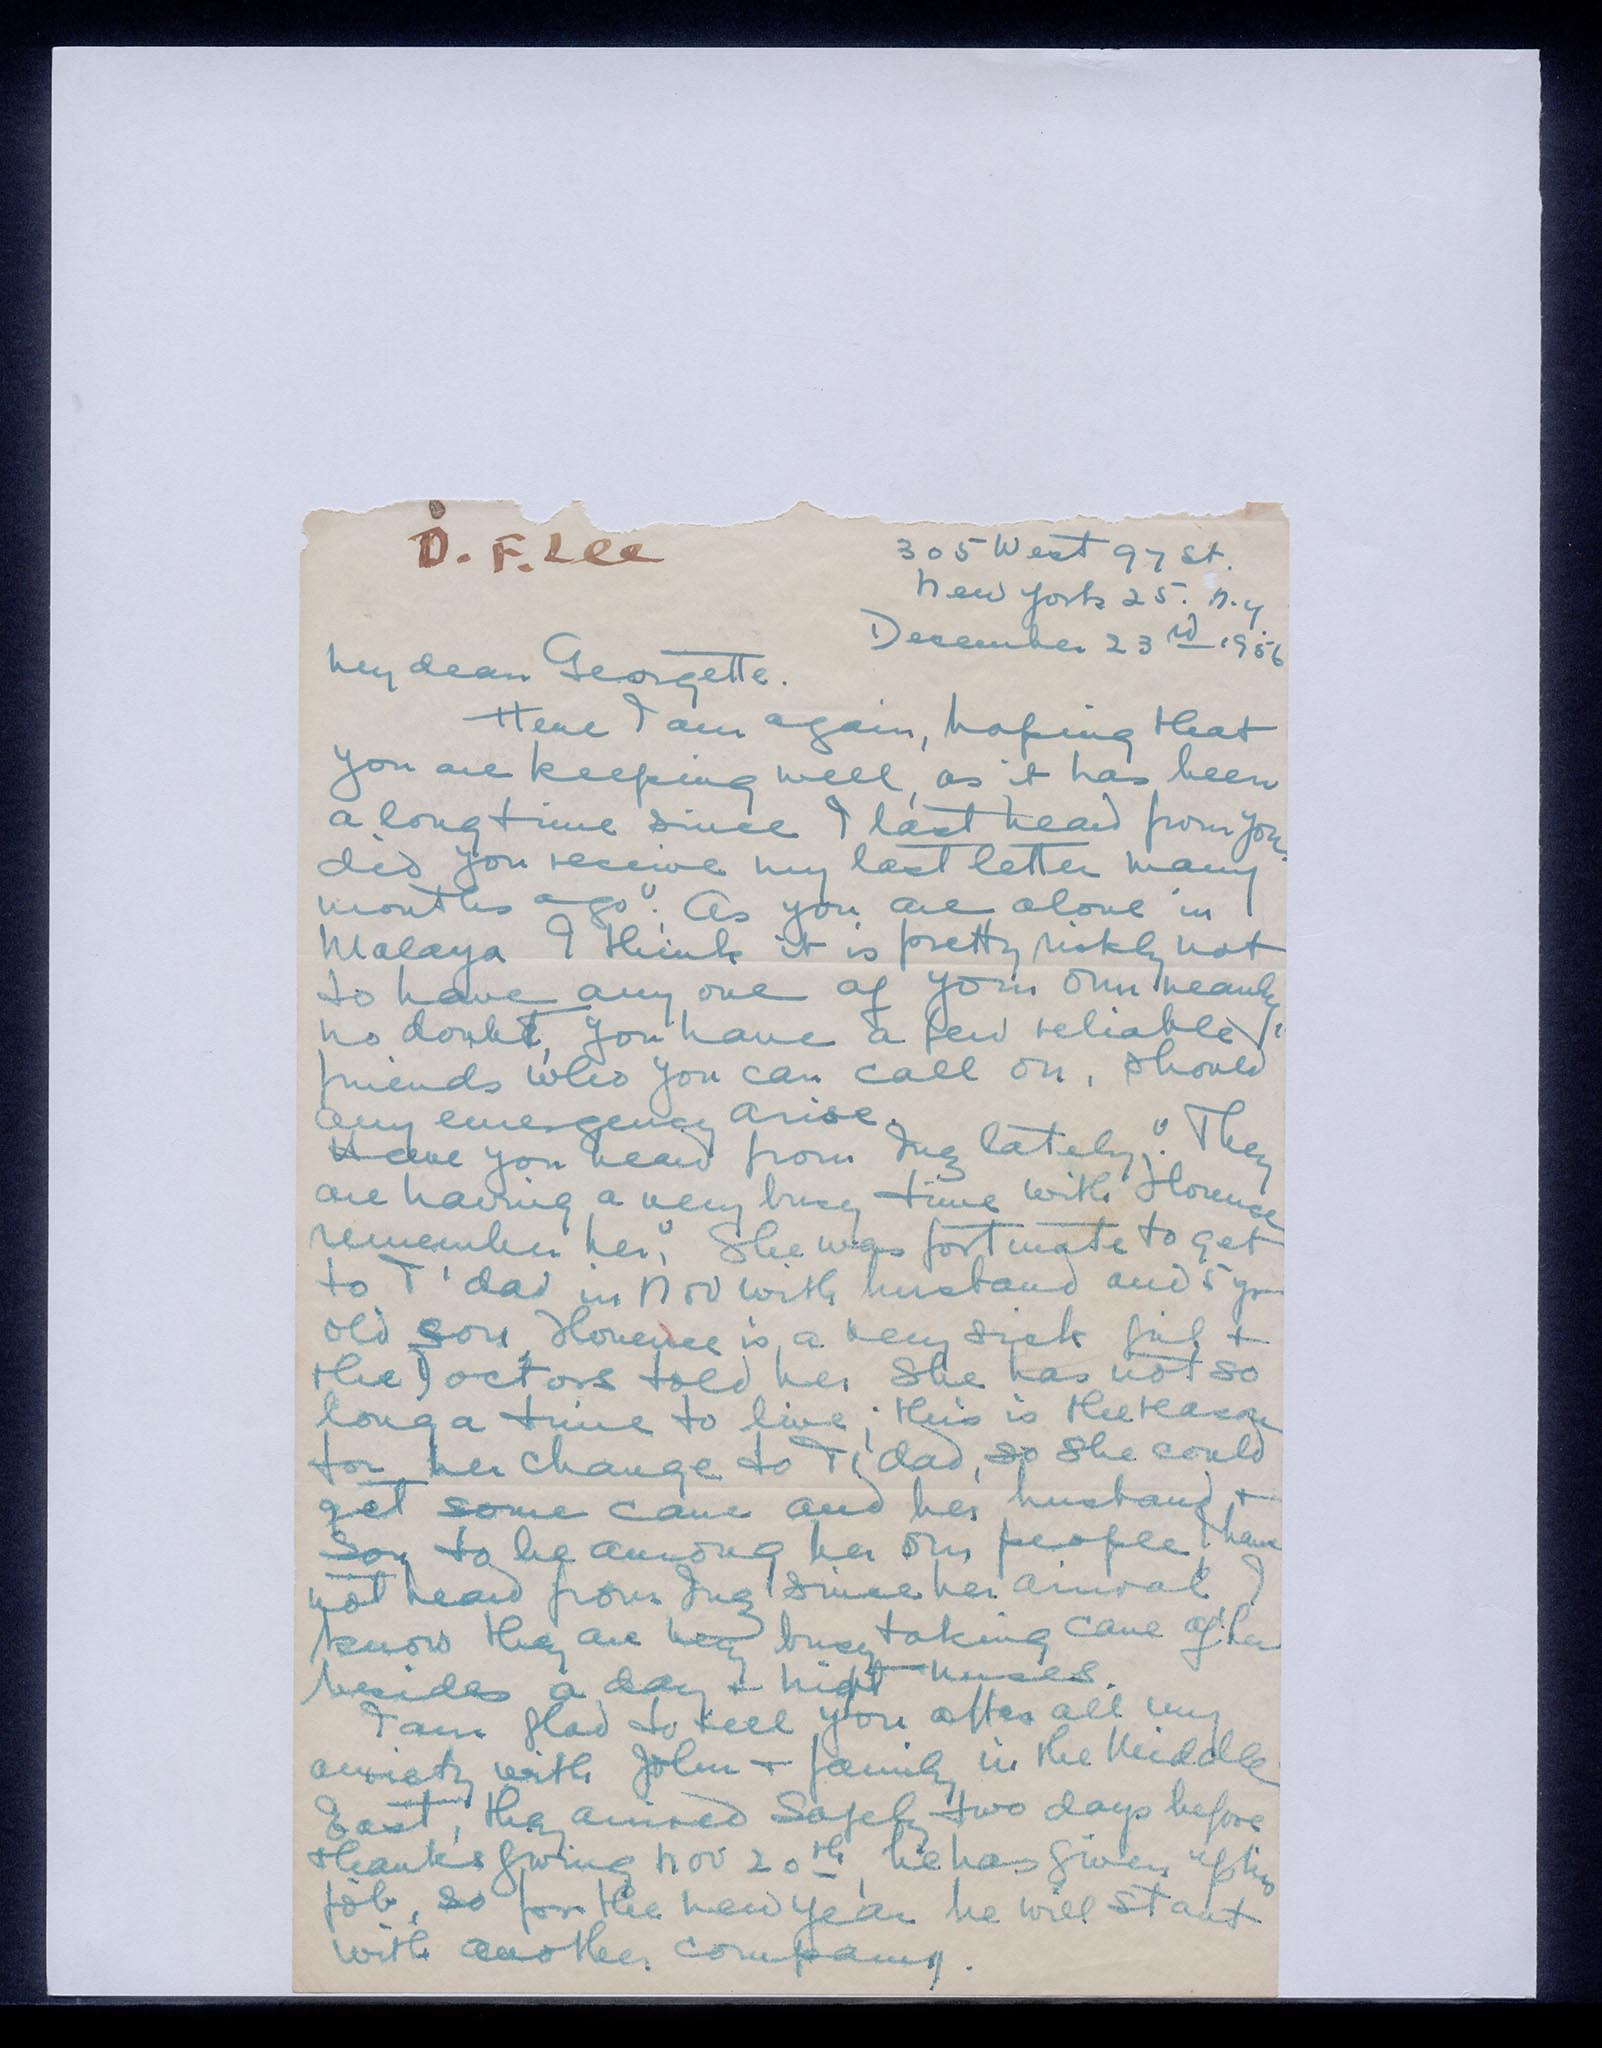 D. F. Lee
305 West 97 St.
New York 25. N.Y.
December 23rd 1956
My dear Georgette.
Here I am again, hoping that
you are keeping well, as it has been
a long time since I last heard from you.
did you receive my last letter many
months ago". As you are alone in
Malaya I think it is pretty riskly not
to have any one of your own nearby
no doubt, you have a few reliable
friends who you can call on, should
any emergency arise.
Have you heard from Ing lately". They
are having a very busy time with Florence
remember her," She was fortunate to get
to T'dad in Nov with husband and 5 yr
old son, Florence is a very sick girl +
the Doctors told her she has not so
long a time to live; this is the reason
for her change to T'dad, so she could
get some care and her husband, +
son to be among her own people I have
not heard from Ing since her arrival I
know they are very busy taking care of her
besides a day + night nurses.
I am glad to tell you after all my
anxiety with John + family in the Middle
East, they arrived safely two days before
thanks giving Nov 20th, he has given up his
job, so for the new year he will start
with another company.